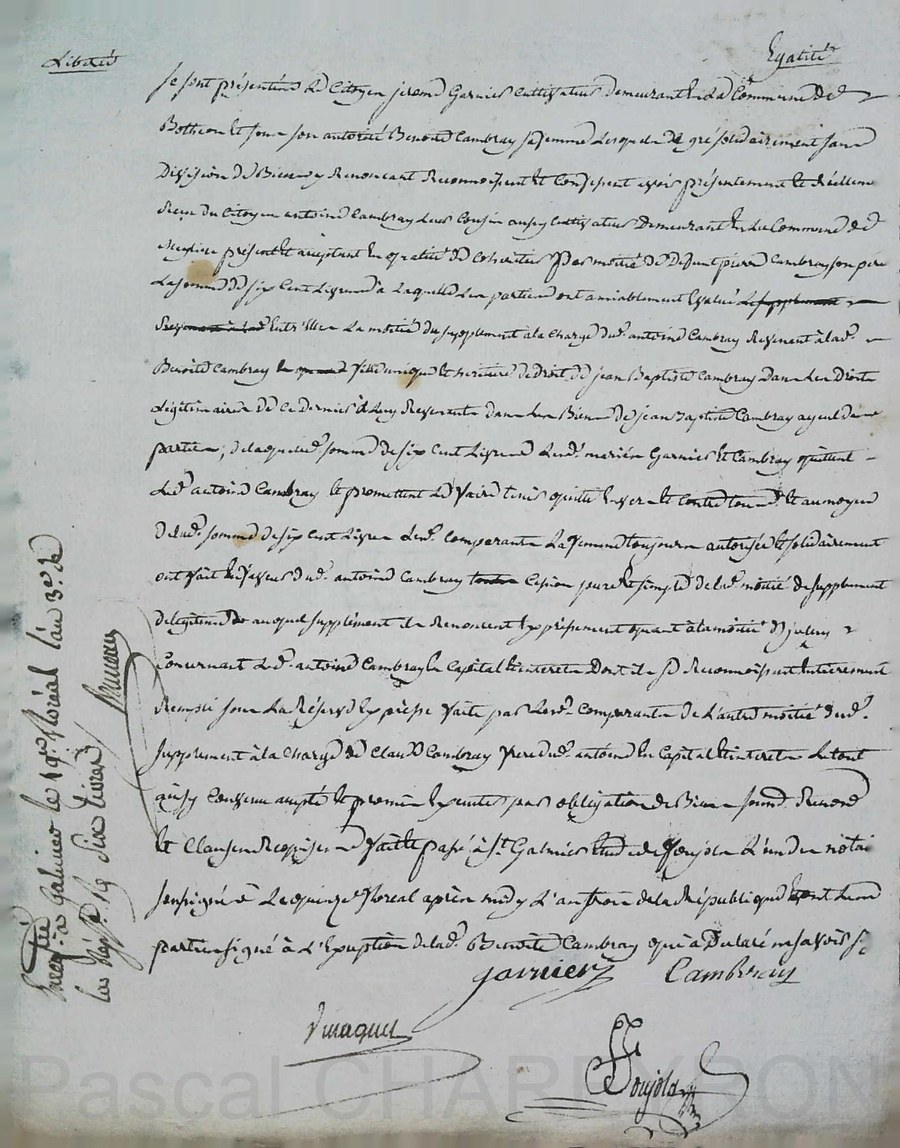 Liberté
Egalité
Se sont présentés Le Citoyen jerome Garnier Cultivateur demeurant En La Commune de
Botheon Et sous son autorité Benoite Cambray sa femme Lesquels de gré solidairement sans
Division de Biens y Renonçant Reconnoissent Et Confessent avoir présentement Et Réellemt
Recu du Citoyen antoine Cambray Leur Cousin aussy Cultivateur Demeurant En La Commune de
présent Et acceptant En qualité de cohéritier Par moitié de Defunt pierre Cambray son pere
La somme de six Cent Livres à Laquelle Les parties ont amiablement Evalué Le supplement
Entr'Elles La moitié du supplement à la charge dud. antoine Cambray Revenant à lad.
Benoite Cambray fille unique Et heritiere de Droit de jean Baptiste Cambray Dans Les Droits
Légitimaires de Ce dernier à Luy Reservants dans Les Biens de jean Baptiste Cambray ayeul des
parties, de laquelle somme de six Cent Livres Lesd. mariés Garnier Et Cambray quittent
Led. antoine Cambray Et promettent Le faire tenir quitte Envers Et Contre tous Et au moyen
de lad. somme de six Cent Livres Lesd. Comparants La femme toujours autorisée Et solidairement
ont fait En faveur dud. antoine Cambray Cession pure Et simple de lad. moitié de supplement
de légitime auquel supplément ils Renoncent Expressement quant à la moitié
Concernant Led. antoine Cambray En Capital Et interets Dont ils se Reconnoissent Entierement
Remplis sous La Réserve Expresse faite par Lesd. Comparants de L'autre moitié dud.
supplement à la charge de Claude Cambray frere dud. antoine En Capital Et interets Le tout
ainsy Convenu accepté Et promis Executer par obligation de Biens
Et Clauses Requises fait Et passé à St. Galmier Etude de Poujola L'un des notai
soussignés Le quinze floreal après midy L'an trois de la République Et ont Les
parties signé à L'Exception de lad. Benoite Cambray qui a Declaré ne savoir
garnier Cambray
Poujola
Enregistré à Galmier le 19e. floréal l'an 3e. de
la Rép. Rç. Six livres